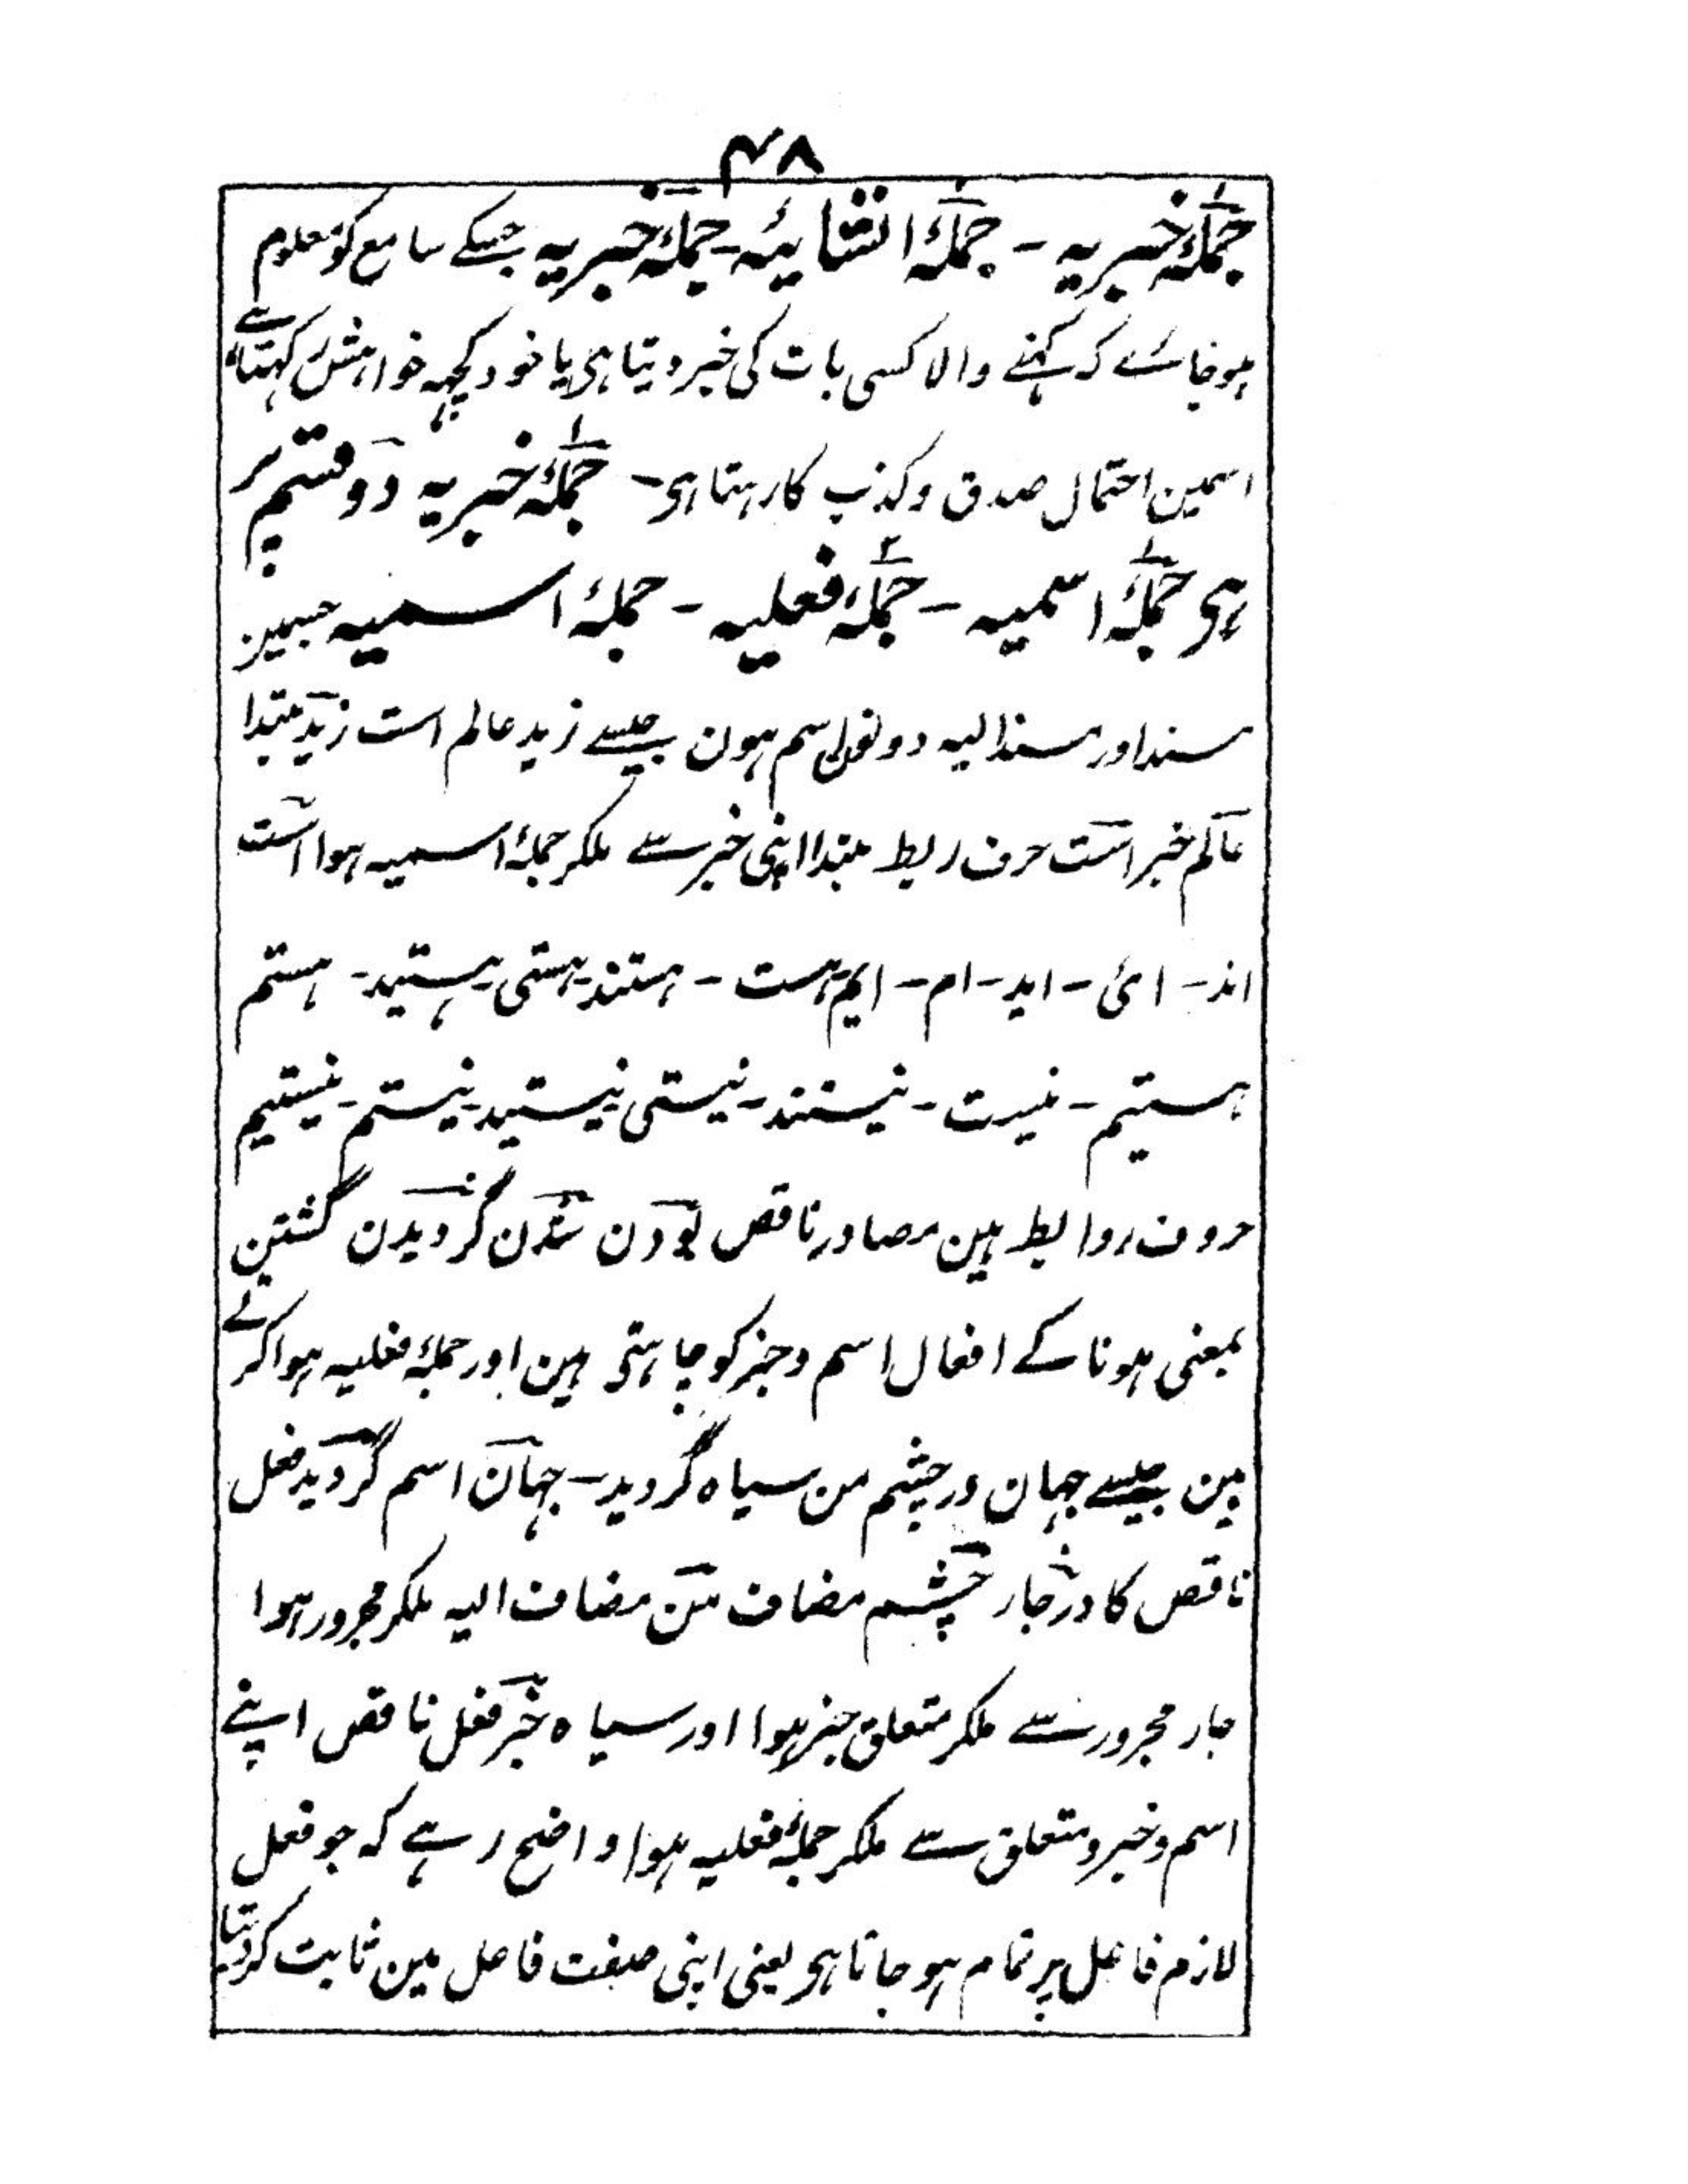 ۴۸
جملۂ خبریہ - جملۂ انشائیہ - جملۂ خبریہ جسکے سامع کو معلوم
ہو جائے کہ کہنے والا کسی بات کی خبر دیتا ہی یا خود کچہہ خواہش کہتا ہے
اسمین احتمال صدق و کذب کا رہتا ہی - جملۂ خبریہ دو قسم پر
ہی جملۂ اسمیہ - جملۂ فعلیہ - جملۂ اسمیہ جسمین
مسند اور مسند الیہ دونون اسم ہون جیسے زید عالم است زید مبتدا
عالم خبر است حرف ربط مبتدا اپنی خبر سے ملکر جملۂ اسمیہ ہوا است
اند - ائ - اید - ام - ایم ہست - ہستند - ہستی - ہستید - ہستم
ہستیم - نیست - نیستند - نیستی نیستید - نیستم - نیستیم
حروف روابط ہین مصادر ناقص بودن شدن گردیدن گشتن
بمعنی ہونا کے افعال اسم و خبر کو چاہتی ہین اور جملۂ فعلیہ ہوا کرتے
ہین جیسے جہان در چشم من سیاہ گردید - جہان اسم گردید فعل
ناقص کا در جار چشم مضاف من مضاف الیہ ملکر مجرور ہوا
جار مجرور سے ملکر متعلق خبر ہوا اور سیاہ خبر فعل ناقص اپنے
اسم و خبر و متعلق سے ملکر جملۂ فعلیہ ہوا واضح رہے کہ جو فعل
لازم فاعل پر تمام ہو جاتا ہی یعنی اپنی صفت فاعل مین ثابت کردیتا